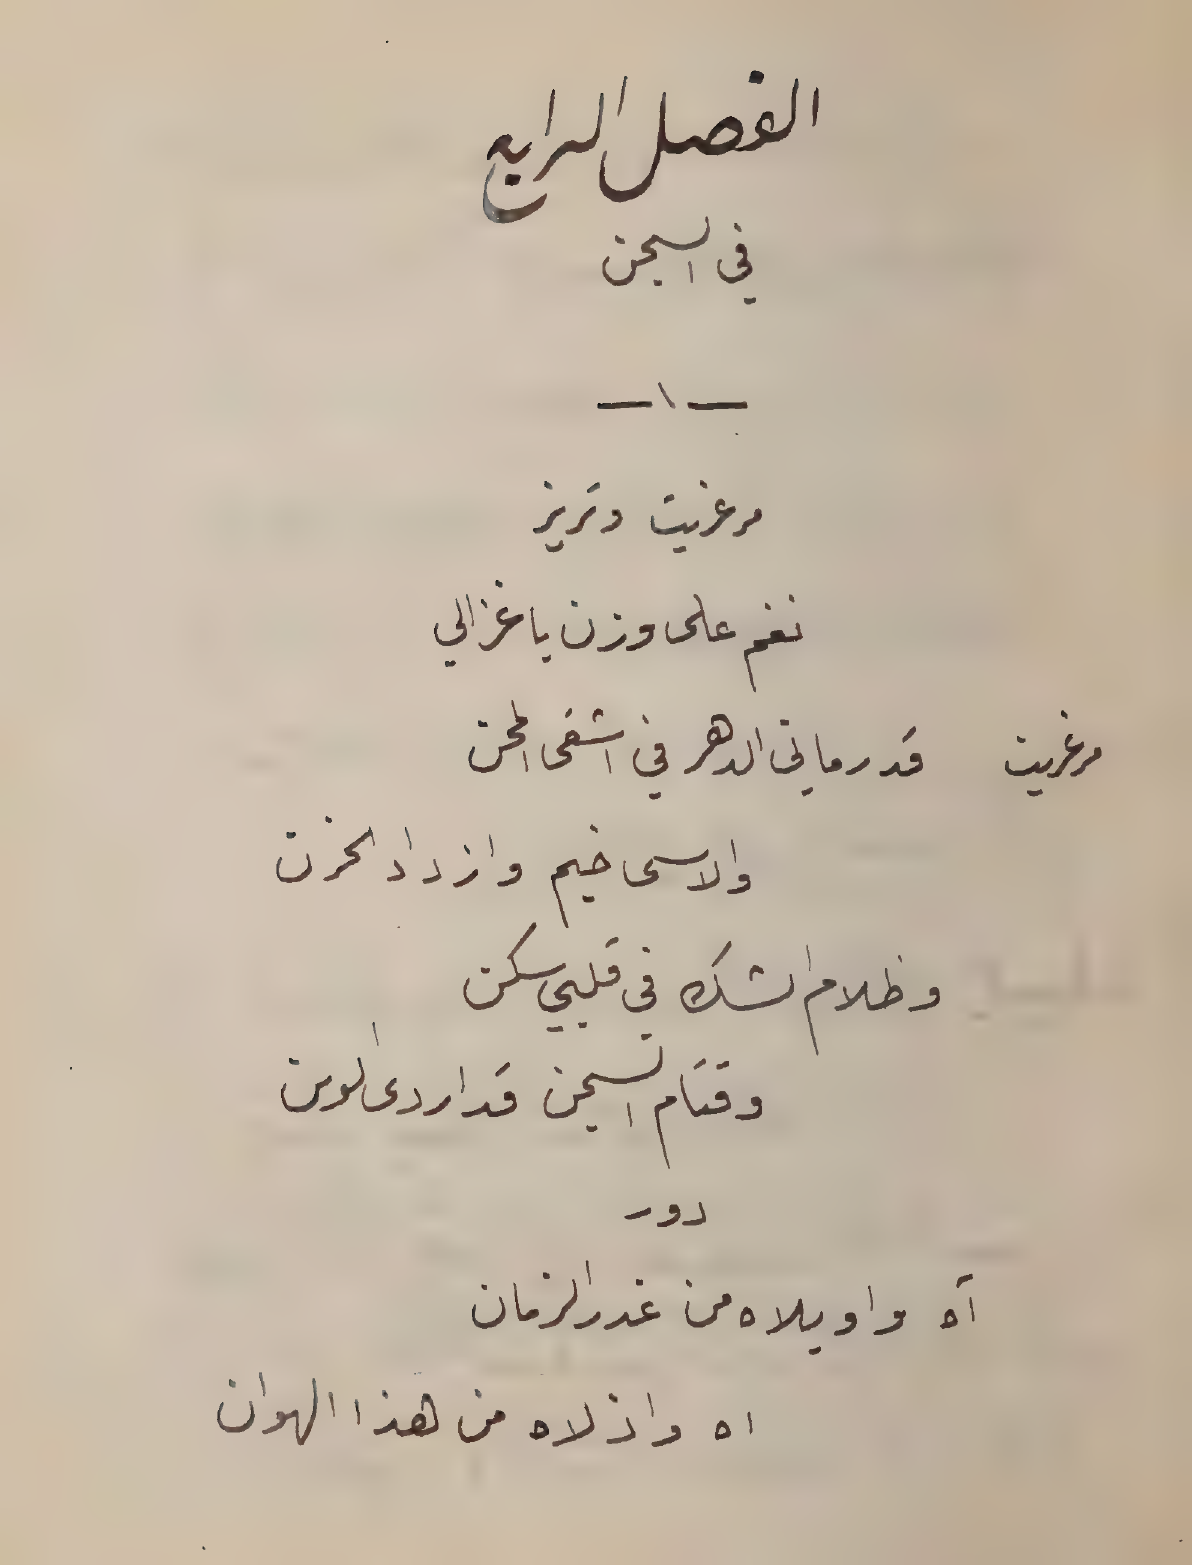 الفصل الرابع
في السجن
— ١ —
مرغريت وتريز
نغم على وزن يا غزالي
مرغريت قد رماني الدهر في اشقى المحن
والاسى خيم وازداد الحزن
وظلام الشك في قلبي سكن
وقتام السجن قد اردى الوسن
دور
آه واويلاه من غدر الزمان
اه واذلاه من هذا الهوان